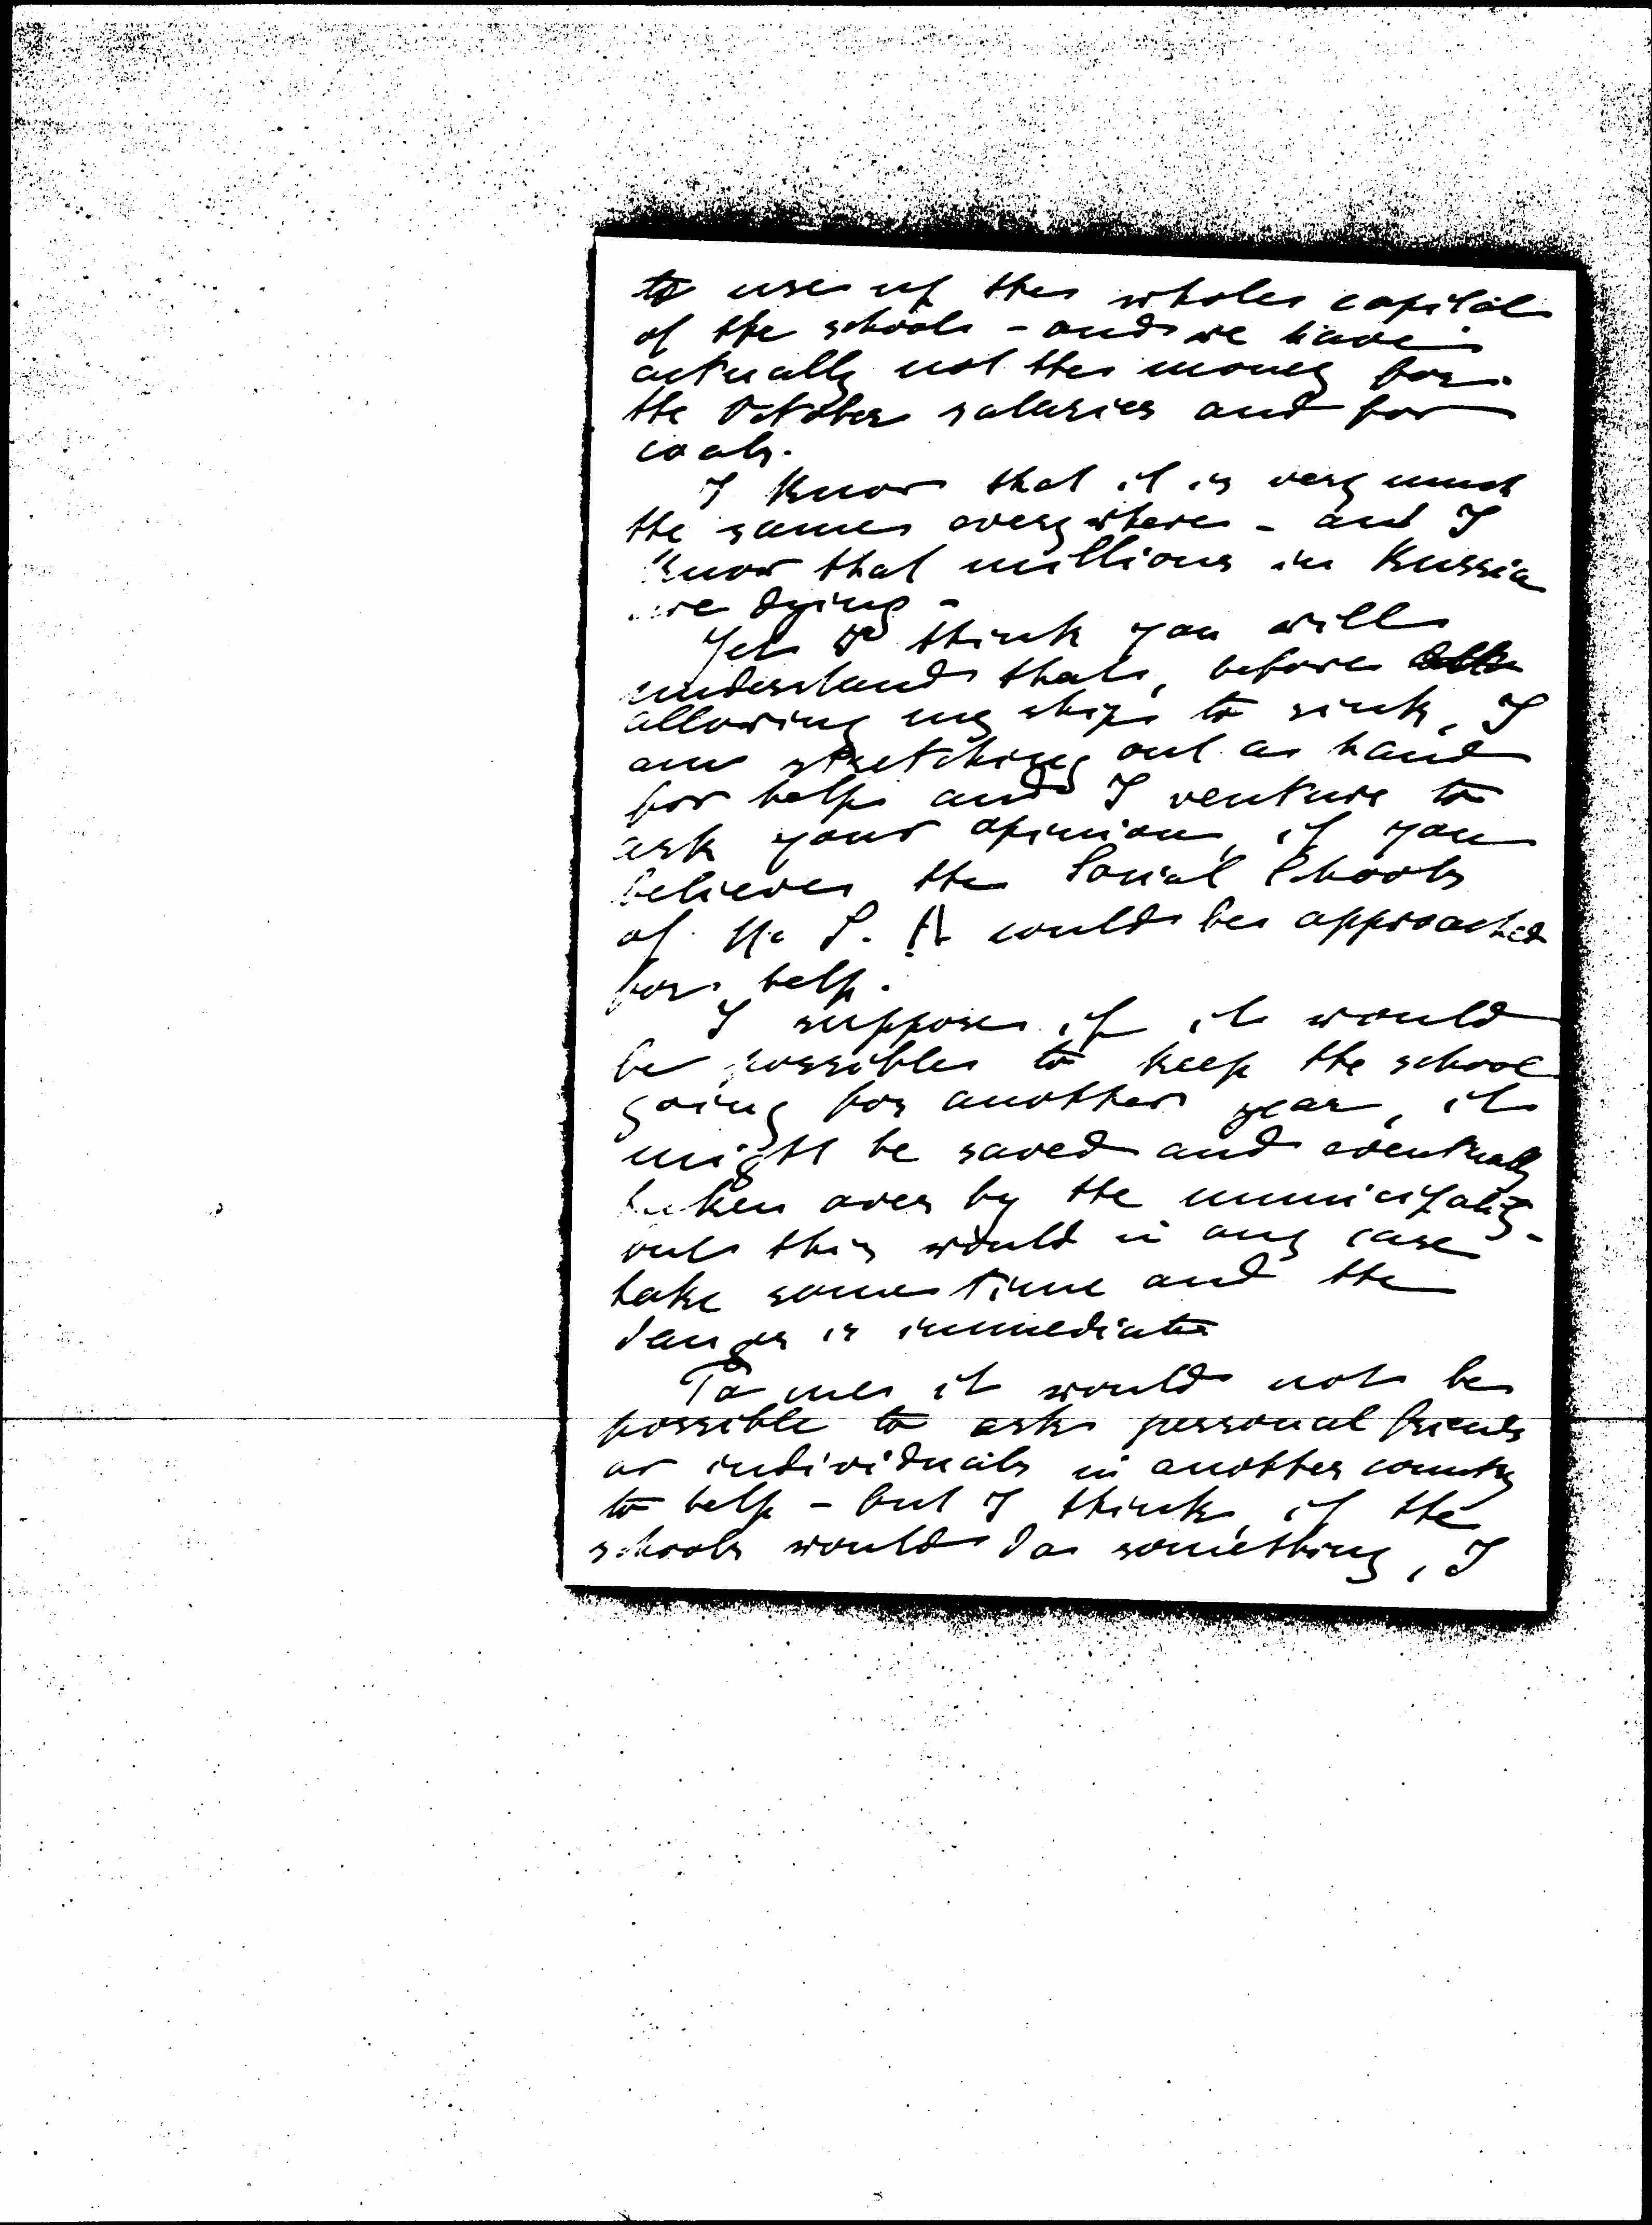 to use up the whole capital
of the school - and we have
actually not the money for
the October salaries and for
coals.
I know that it is very much
the same everywhere - and I
know that millions in Russia
are dying -
Yet I think you will
understand that, before
allowing my ship to sink, I
am stretching out a hand
for help and I venture to
ask your opinion, if you
believe the Social Schools
of U. S. A. could be approached
for help.
I suppose if it would
be possible to keep the school
going for another year, it
might be saved and eventually
taken over by the municipality -
but this would in any case
take some time and the
danger is immediate
To me it would not be
possible to ask personal friends
or individuals in another country
to help - but I think, if the
schools would do something, I